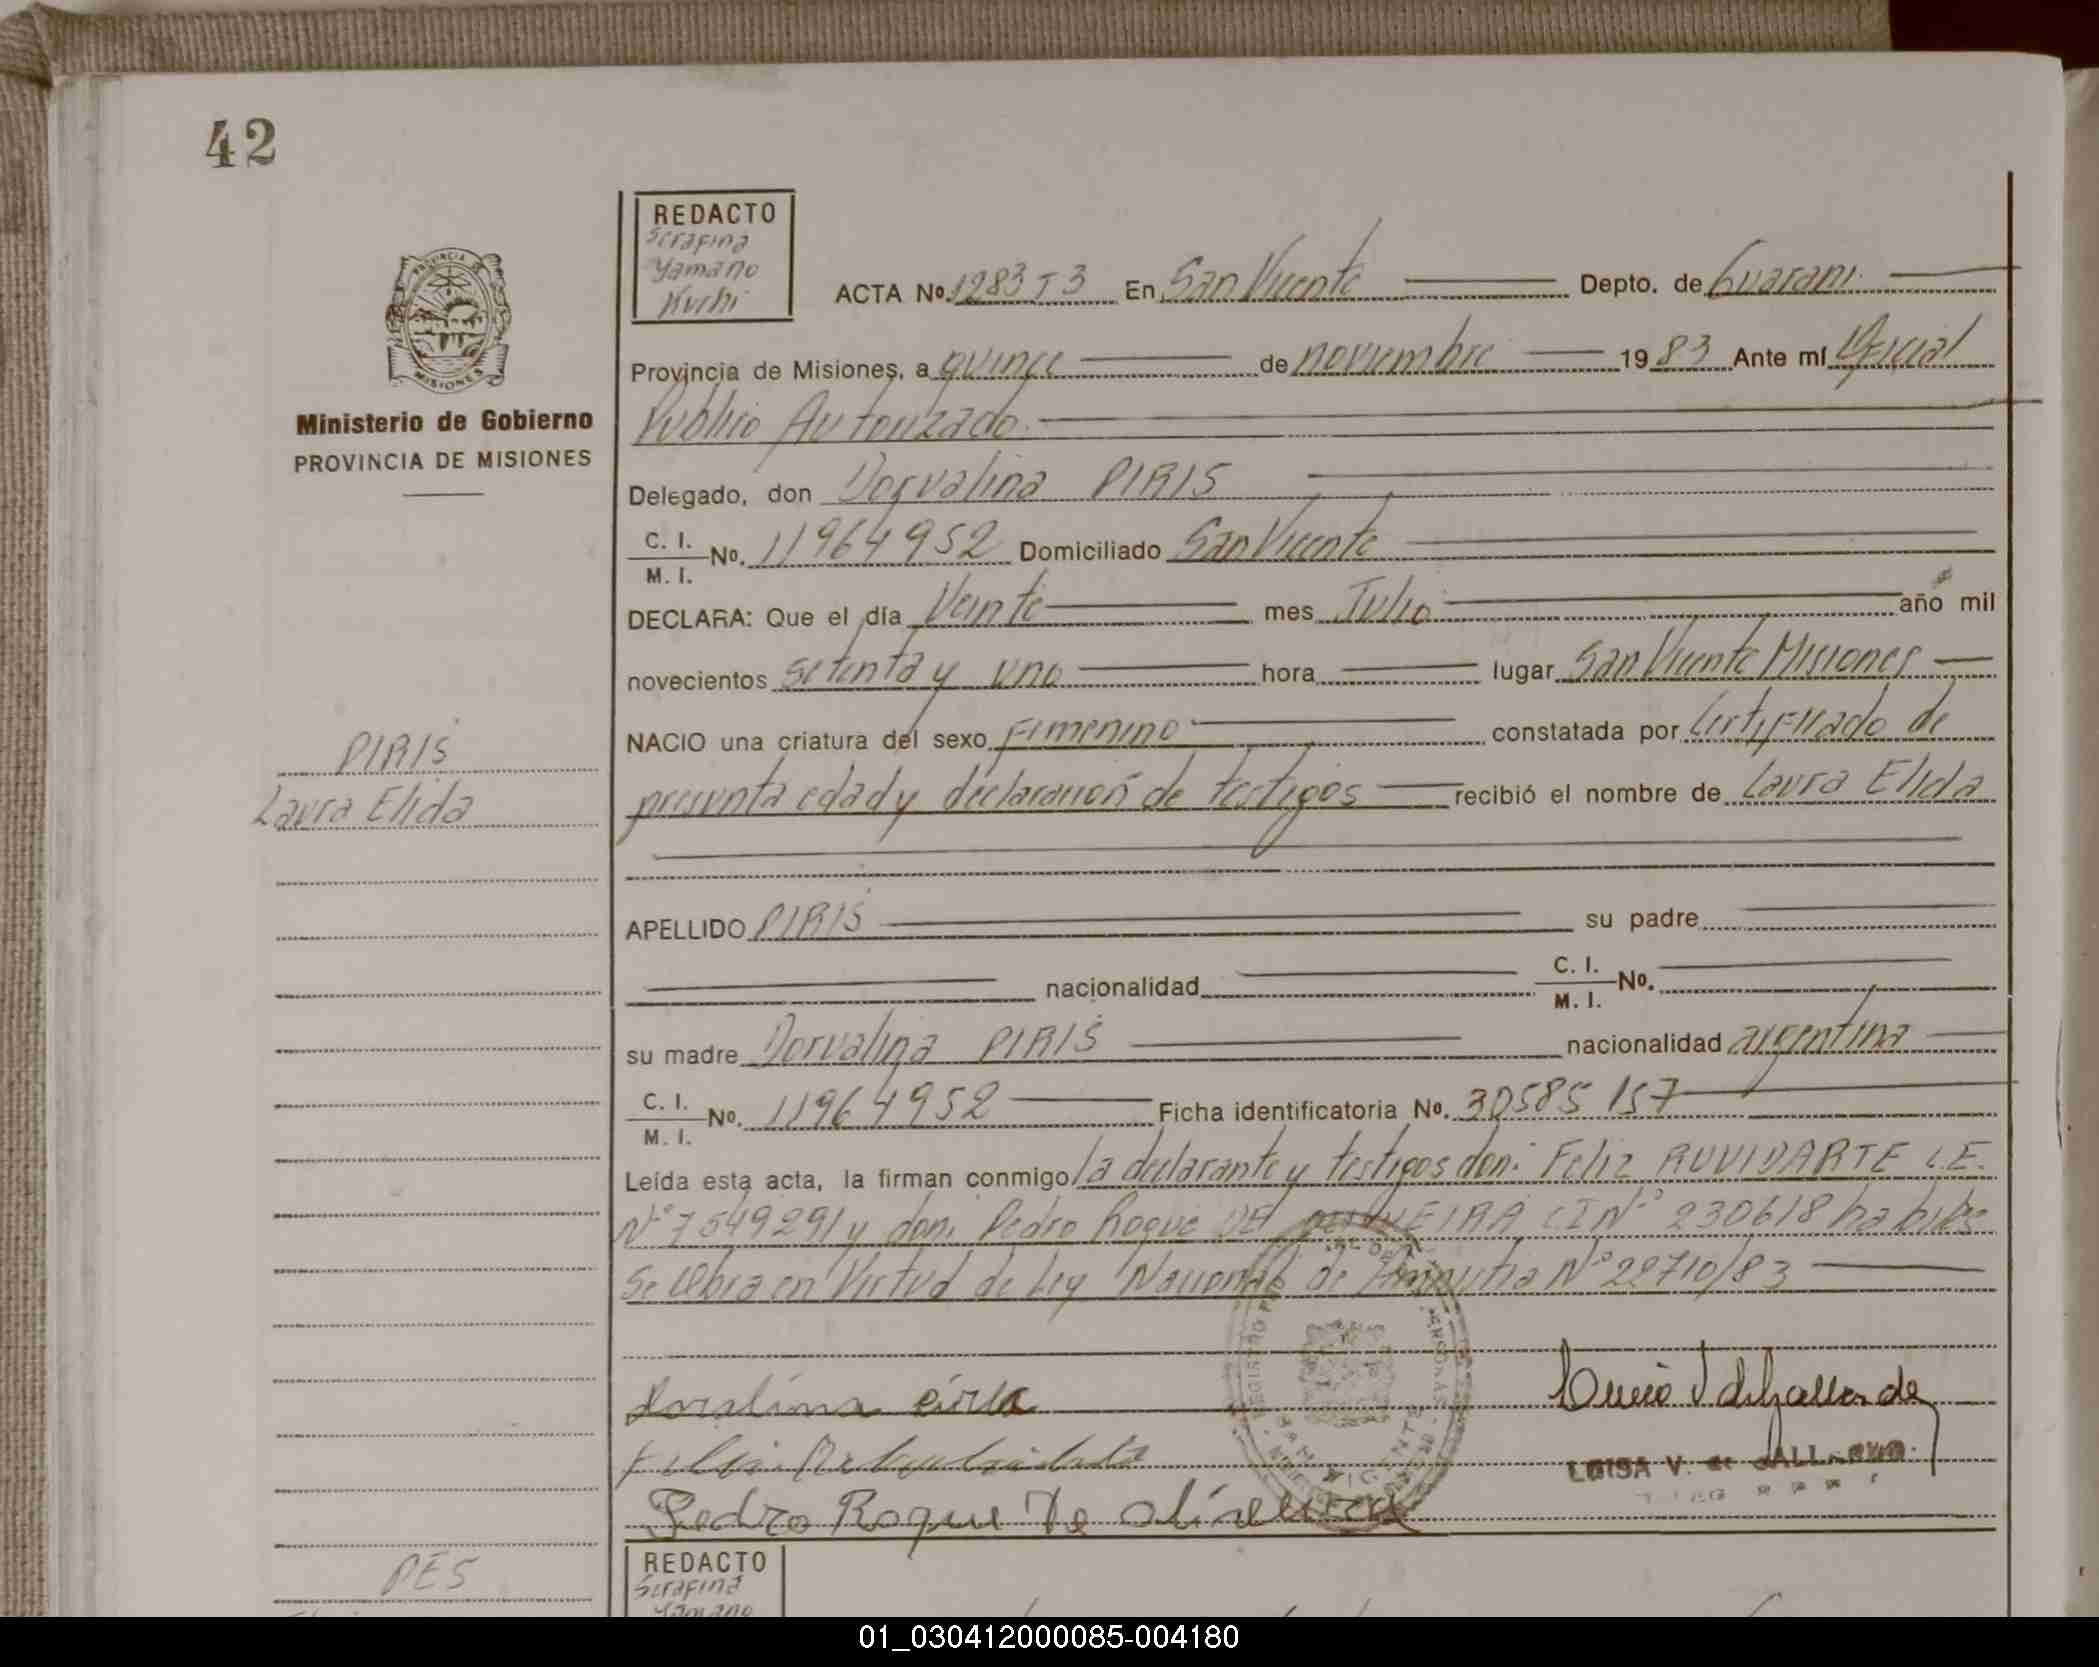 42
REDACTO
Serafina
Yamano
Kuchi
PROVINCIA DE
MISIONES
Ministerio de Gobierno
PROVINCIA DE MISIONES
ACTA No. 1283 T3 En San Vicente Depto. de Guarani
Provincia de Misiones, a quince de noviembre 1983 Ante mí Oficial
Publico Autorizado
Delegado, don Dorvalina PIRIS
C. I. / M. I. No. 11964952 Domiciliado San Vicente
DECLARA: Que el día Veinte mes Julio año mil
novecientos setenta y uno hora lugar San Vicente Misiones
NACIO una criatura del sexo Femenino constatada por Certificado de
presunta edad y declaracion de testigos recibió el nombre de Laura Elida
PIRIS
Laura Elida
APELLIDO PIRIS su padre
nacionalidad C. I. / M. I. No.
su madre Dorvalina PIRIS nacionalidad argentina
C. I. / M. I. No. 11964952 Ficha identificatoria No. 30585157
Leída esta acta, la firman conmigo la declarante y testigos don: Feliz RUVIDARTE L.E.
N° 7549291 y don: Pedro Roque DE OLIVEIRA CI N° 230618 habiles
Se labra en Virtud de Ley Nacional de Amnistia N° 22710/83
Pedro Roque De Oliveira
LUISA V. de GALLARDO
PES
REDACTO
Serafina
Yamano
01_030412000085-004180